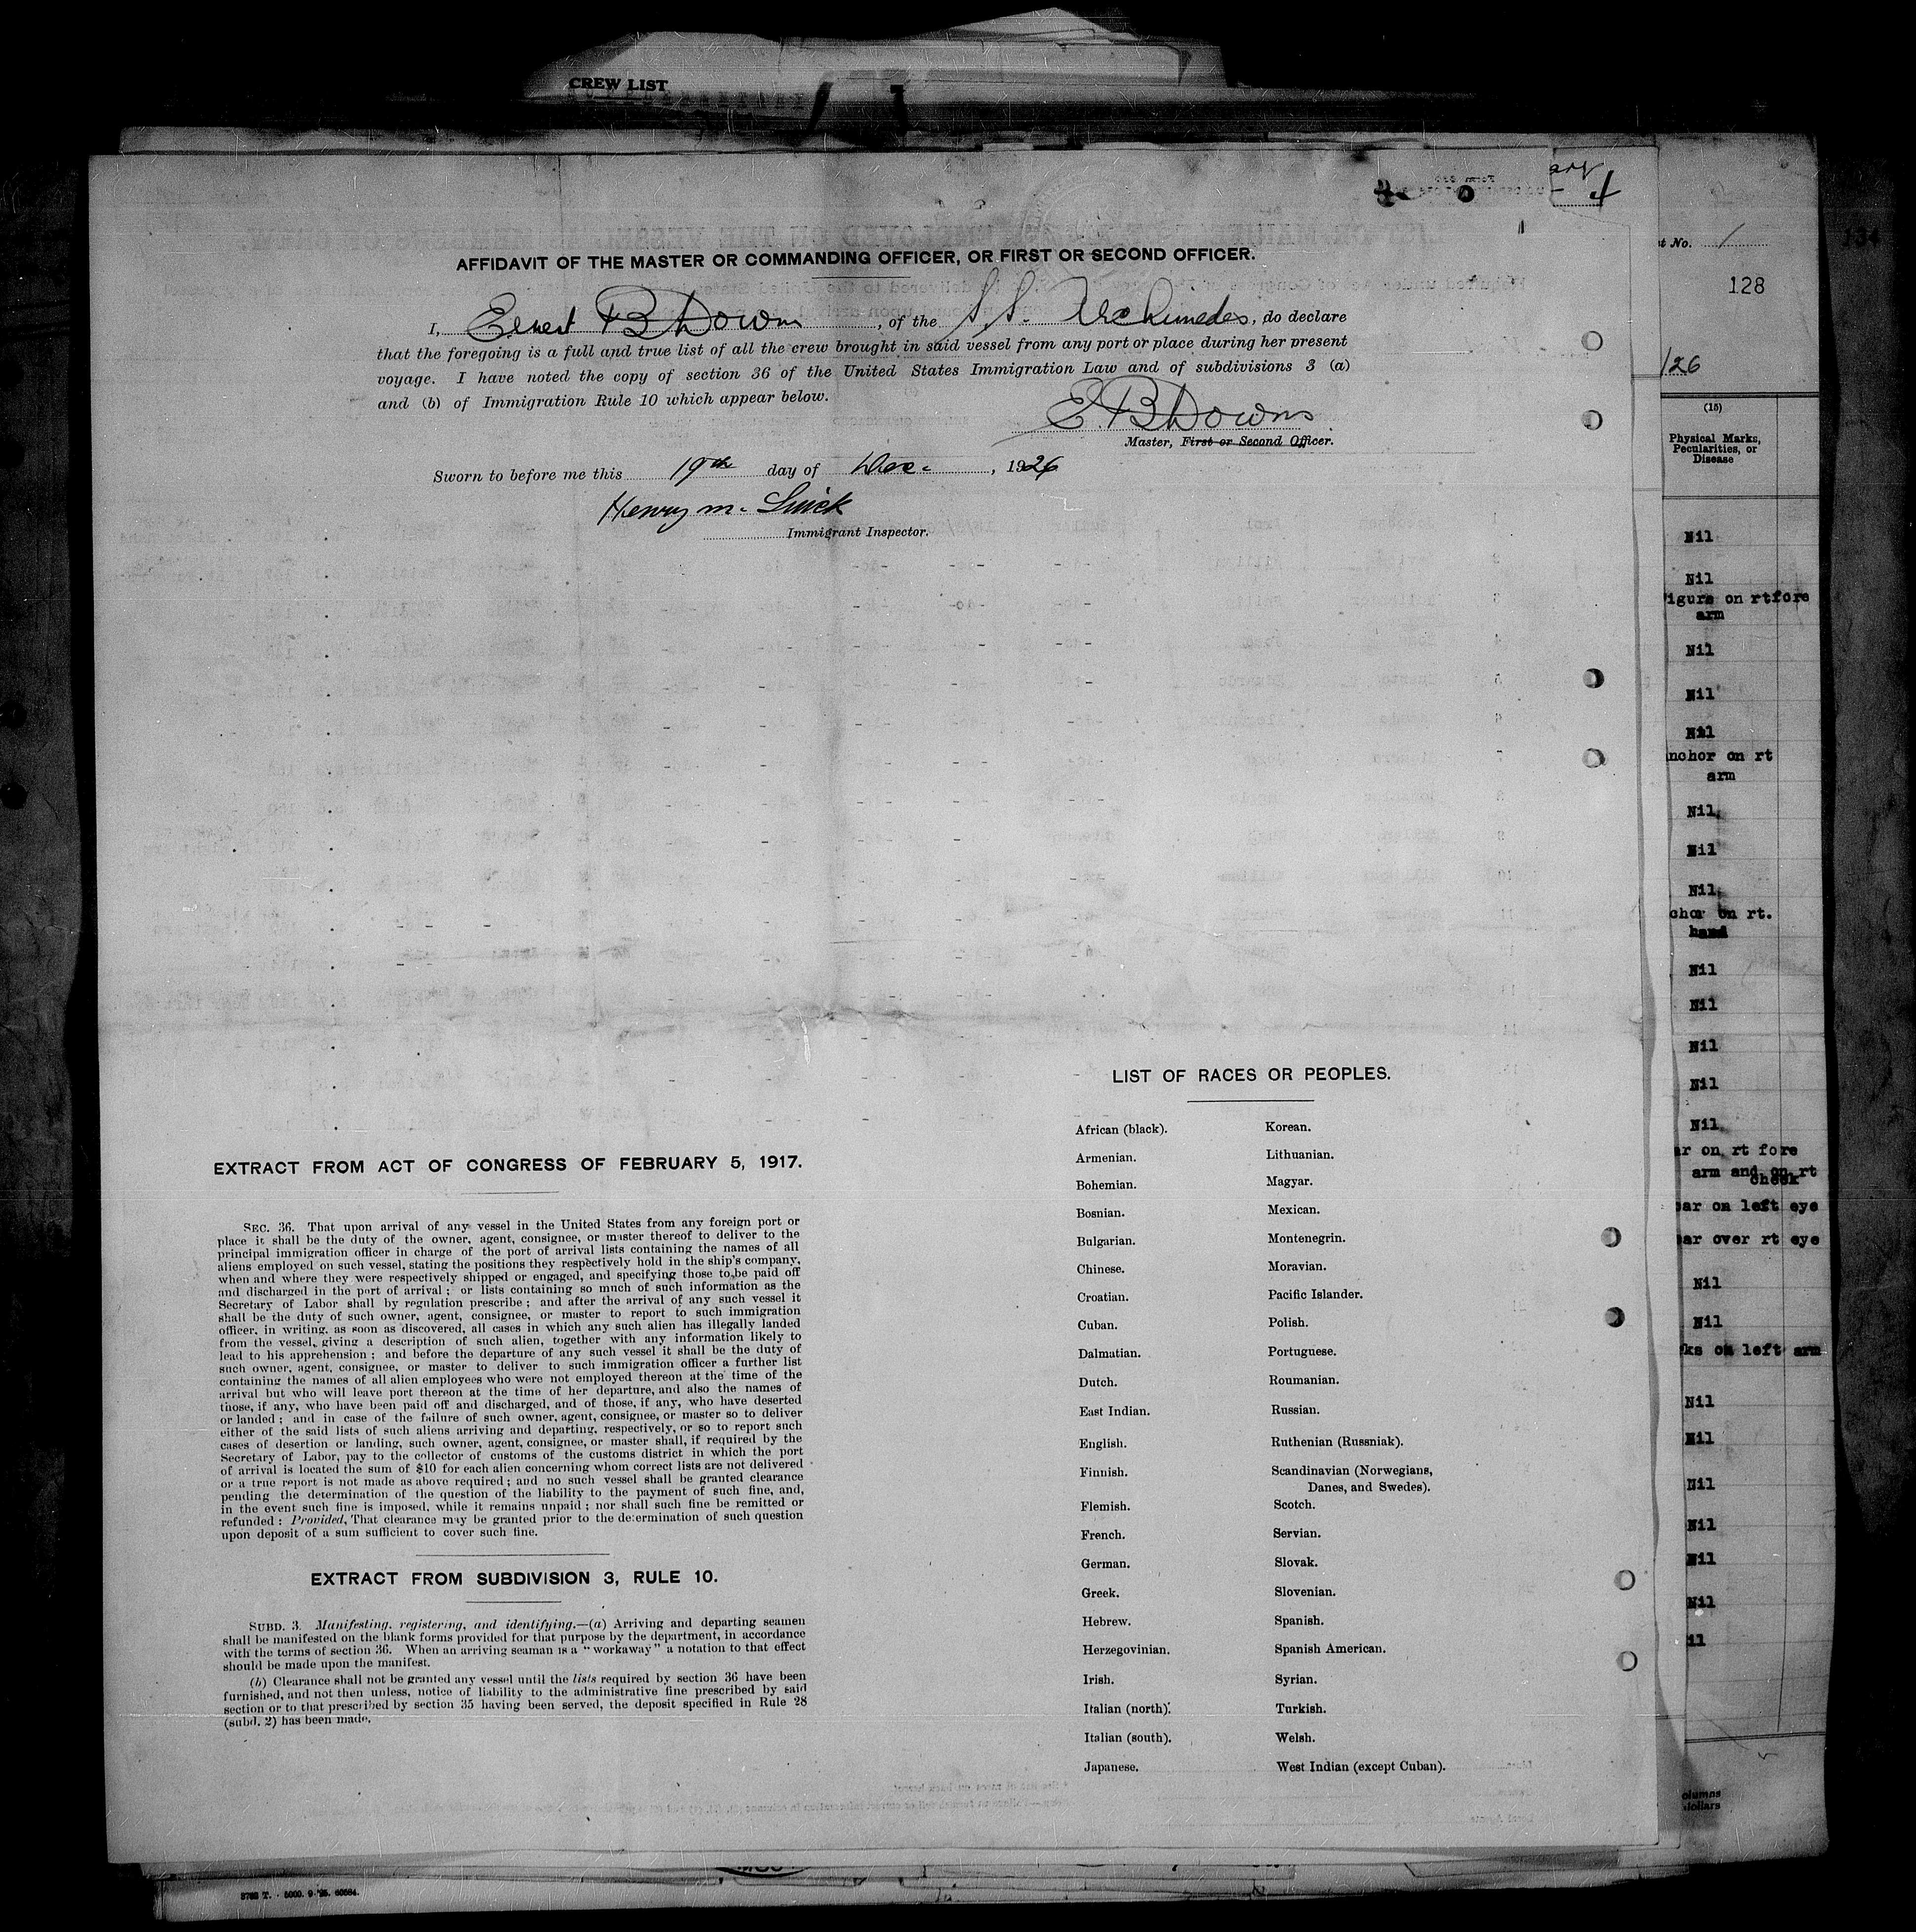 CREW LIST
AFFIDAVIT OF THE MASTER OR COMMANDING OFFICER, OR FIRST OR SECOND OFFICER.
I, Ernest B Downs, of the S.S. Archimedes, do declare
that the foregoing is a full and true list of all the crew brought in said vessel from any port or place during her present
voyage. I have noted the copy of section 36 of the United States Immigration Law and of subdivisions 3 (a)
and (b) of Immigration Rule 10 which appear below.
E. B Downs
Master, First or Second Officer.
Sworn to before me this 19th day of Dec. , 1926
Henry M.
Immigrant Inspector.
EXTRACT FROM ACT OF CONGRESS OF FEBRUARY 5, 1917.
SEC. 36. That upon arrival of any vessel in the United States from any foreign port or
place it shall be the duty of the owner, agent, consignee, or master thereof to deliver to the
principal immigration officer in charge of the port of arrival lists containing the names of all
aliens employed on such vessel, stating the positions they respectively hold in the ship's company,
when and where they were respectively shipped or engaged, and specifying those to be paid off
and discharged in the port of arrival; or lists containing so much of such information as the
Secretary of Labor shall by regulation prescribe; and after the arrival of any such vessel it
shall be the duty of such owner, agent, consignee, or master to report to such immigration
officer, in writing, as soon as discovered, all cases in which any such alien has illegally landed
from the vessel, giving a description of such alien, together with any information likely to
lead to his apprehension; and before the departure of any such vessel it shall be the duty of
such owner, agent, consignee, or master to deliver to such immigration officer a further list
containing the names of all alien employees who were not employed thereon at the time of the
arrival but who will leave port thereon at the time of her departure, and also the names of
those, if any, who have been paid off and discharged, and of those, if any, who have deserted
or landed; and in case of the failure of such owner, agent, consignee, or master so to deliver
either of the said lists of such aliens arriving and departing, respectively, or so to report such
cases of desertion or landing, such owner, agent, consignee, or master shall, if required by the
Secretary of Labor, pay to the collector of customs of the customs district in which the port
of arrival is located the sum of $10 for each alien concerning whom correct lists are not delivered
or a true report is not made as above required; and no such vessel shall be granted clearance
pending the determination of the question of the liability to the payment of such fine, and,
in the event such fine is imposed, while it remains unpaid; nor shall such fine be remitted or
refunded: Provided, That clearance may be granted prior to the determination of such question
upon deposit of a sum sufficient to cover such fine.
EXTRACT FROM SUBDIVISION 3, RULE 10.
SUBD. 3. Manifesting, registering, and identifying.—(a) Arriving and departing seamen
shall be manifested on the blank forms provided for that purpose by the department, in accordance
with the terms of section 36. When an arriving seaman is a "workaway" a notation to that effect
should be made upon the manifest.
(b) Clearance shall not be granted any vessel until the lists required by section 36 have been
furnished, and not then unless, notice of liability to the administrative fine prescribed by said
section or to that prescribed by section 35 having been served, the deposit specified in Rule 28
(subd. 2) has been made.
LIST OF RACES OR PEOPLES.
African (black).
Armenian.
Bohemian.
Bosnian.
Bulgarian.
Chinese.
Croatian.
Cuban.
Dalmatian.
Dutch.
East Indian.
English.
Finnish.
Flemish.
French.
German.
Greek.
Hebrew.
Herzegovinian.
Irish.
Italian (north).
Italian (south).
Japanese.
Korean.
Lithuanian.
Magyar.
Mexican.
Montenegrin.
Moravian.
Pacific Islander.
Polish.
Portuguese.
Roumanian.
Russian.
Ruthenian (Russniak).
Scandinavian (Norwegians,
Danes, and Swedes).
Scotch.
Servian.
Slovak.
Slovenian.
Spanish.
Spanish American.
Syrian.
Turkish.
Welsh.
West Indian (except Cuban).
t No. 1
128
/26
(15)
Physical Marks,
Pecularities, or
Disease
Nil
Nil
igure on rtfore
arm
Nil
Nil
Nil
nchor on rt
arm
Nil
Nil
Nil
chor on rt.
hand
Nil
Nil
Nil
Nil
Nil
ar on rt fore
arm and on rt
cheek
ar on left eye
ar over rt eye
Nil
Nil
ks on left arm
Nil
Nil
Nil
Nil
Nil
Nil
il
olumns
dollars
3762 T. · 5000. 9·25. 60584.